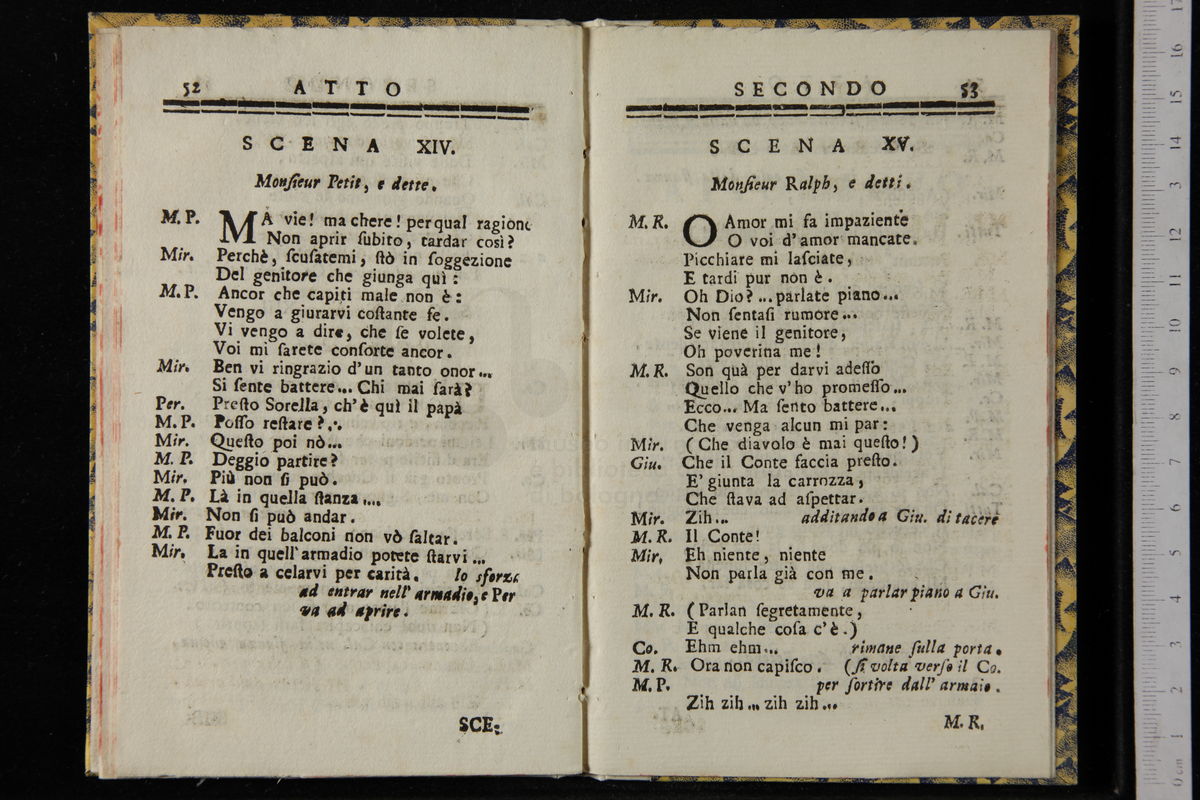 52 ATTO
SCENA XIV.
Monſieur Petit, e dette.
M. P. MA vie! ma chere! per qual ragione
Non aprir ſubito, tardar così?
Mir. Perchè, ſcuſatemi, ſtò in ſoggezione
Del genitore che giunga quì:
M. P. Ancor che capiti male non è:
Vengo a giurarvi coſtante fe.
Vi vengo a dire, che ſe volete,
Voi mi ſarete conſorte ancor.
Mir. Ben vi ringrazio d'un tanto onor...
Si ſente battere... Chi mai ſarà?
Per. Preſto Sorella, ch'è quì il papà
M. P. Poſſo reſtare?...
Mir. Queſto poi nò...
M. P. Deggio partire?
Mir. Più non ſi può.
M. P. Là in quella ſtanza....
Mir. Non ſi può andar.
M. P. Fuor dei balconi non vò ſaltar.
Mir. La in quell'armadio potete ſtarvi...
Preſto a celarvi per carità. lo sforza
ad entrar nell' armadio, e Per
va ad aprire.
SCE-
SECONDO 53
SCENA XV.
Monſieur Ralph, e detti.
M. R. O Amor mi fa impaziente
O voi d'amor mancate.
Picchiare mi laſciate,
E tardi pur non è.
Mir. Oh Dio?...parlate piano...
Non ſentaſi rumore...
Se viene il genitore,
Oh poverina me!
M. R. Son quà per darvi adeſſo
Quello che v'ho promeſſo...
Ecco... Ma ſento battere...
Che venga alcun mi par:
Mir. (Che diavolo è mai queſto!)
Giu. Che il Conte faccia preſto.
E' giunta la carrozza,
Che ſtava ad aſpettar.
Mir. Zih... additando a Giu. di tacere
M. R. Il Conte!
Mir. Eh niente, niente
Non parla già con me.
va a parlar piano a Giu.
M. R. (Parlan ſegretamente,
E qualche coſa c'è.)
Co. Ehm ehm... rimane ſulla porta.
M. R. Ora non capiſco. (ſi volta verſo il Co.
M. P. per ſortire dall' armaio.
Zih zih... zih zih...
M. R.